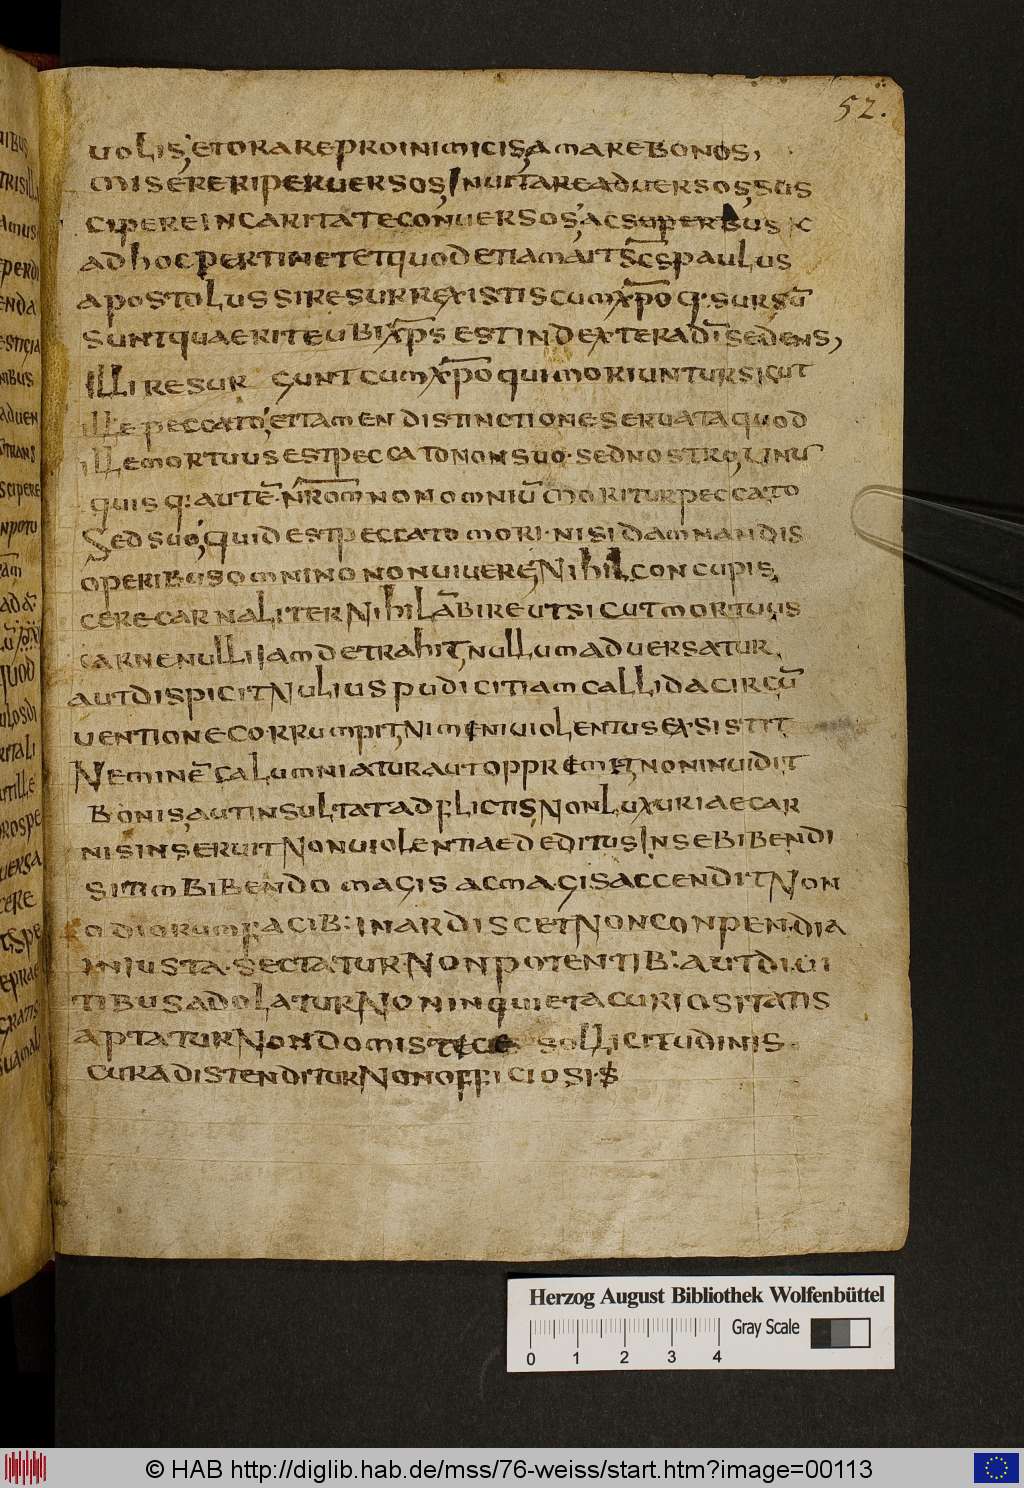 52.
uolis, etorareproinimicis, amarebonos,
misereriperuersos, Inuitareaduersos, sus
cipereincaritateconuersos, acsuperbusx
adhocpertinetetquodetiamaits̄c̄spaulus
apostolussiresurrexistiscumxp̄oq·sursū
suntquaeriteubixp̄sestindexterad̄isedens,
Illiresur guntcumxp̄oquimoriuntursicut
illepeccato, ettamendistinctioneseruataquod
illemortuusestpeccatononsuo·sednostro, Unus
quisq:autē·nr̄omnonomniūmoriturpeccato
Sedsuo, quidestpeccatomori·nisidamnandis
operibusomninononuiuere, Nihilconcupis
cere·carnaliterNihilābireutsicutmortuus
carnenulliiamdetrahit, nullumaduersatur,
autdispicitNuliuspudicitiamcallidacircū
uentione·corrumpit, Niminiuiolentusexsistit
Neminēcalumniaturautopprimit, noninuidit
bonis, autinsultatadflictis, Nonluxuriaecar
nisinseruitNonuiolentiaededitusInsebibendi
sitimbibendomagisacmagisaccenditNon
odiorumfacib:inardiscetNonconpendia
iniusta·sectatur·Nonpotentib:autdiui
tibusadolaturNoninquietacuriositatis
aptaturNondomistice sollicitudinis·
curadistenditurNonofficiosi·s
Herzog August Bibliothek Wolfenbüttel
Gray Scale
0 1 2 3 4
© HAB http://diglib.hab.de/mss/76-weiss/start.htm?image=00113